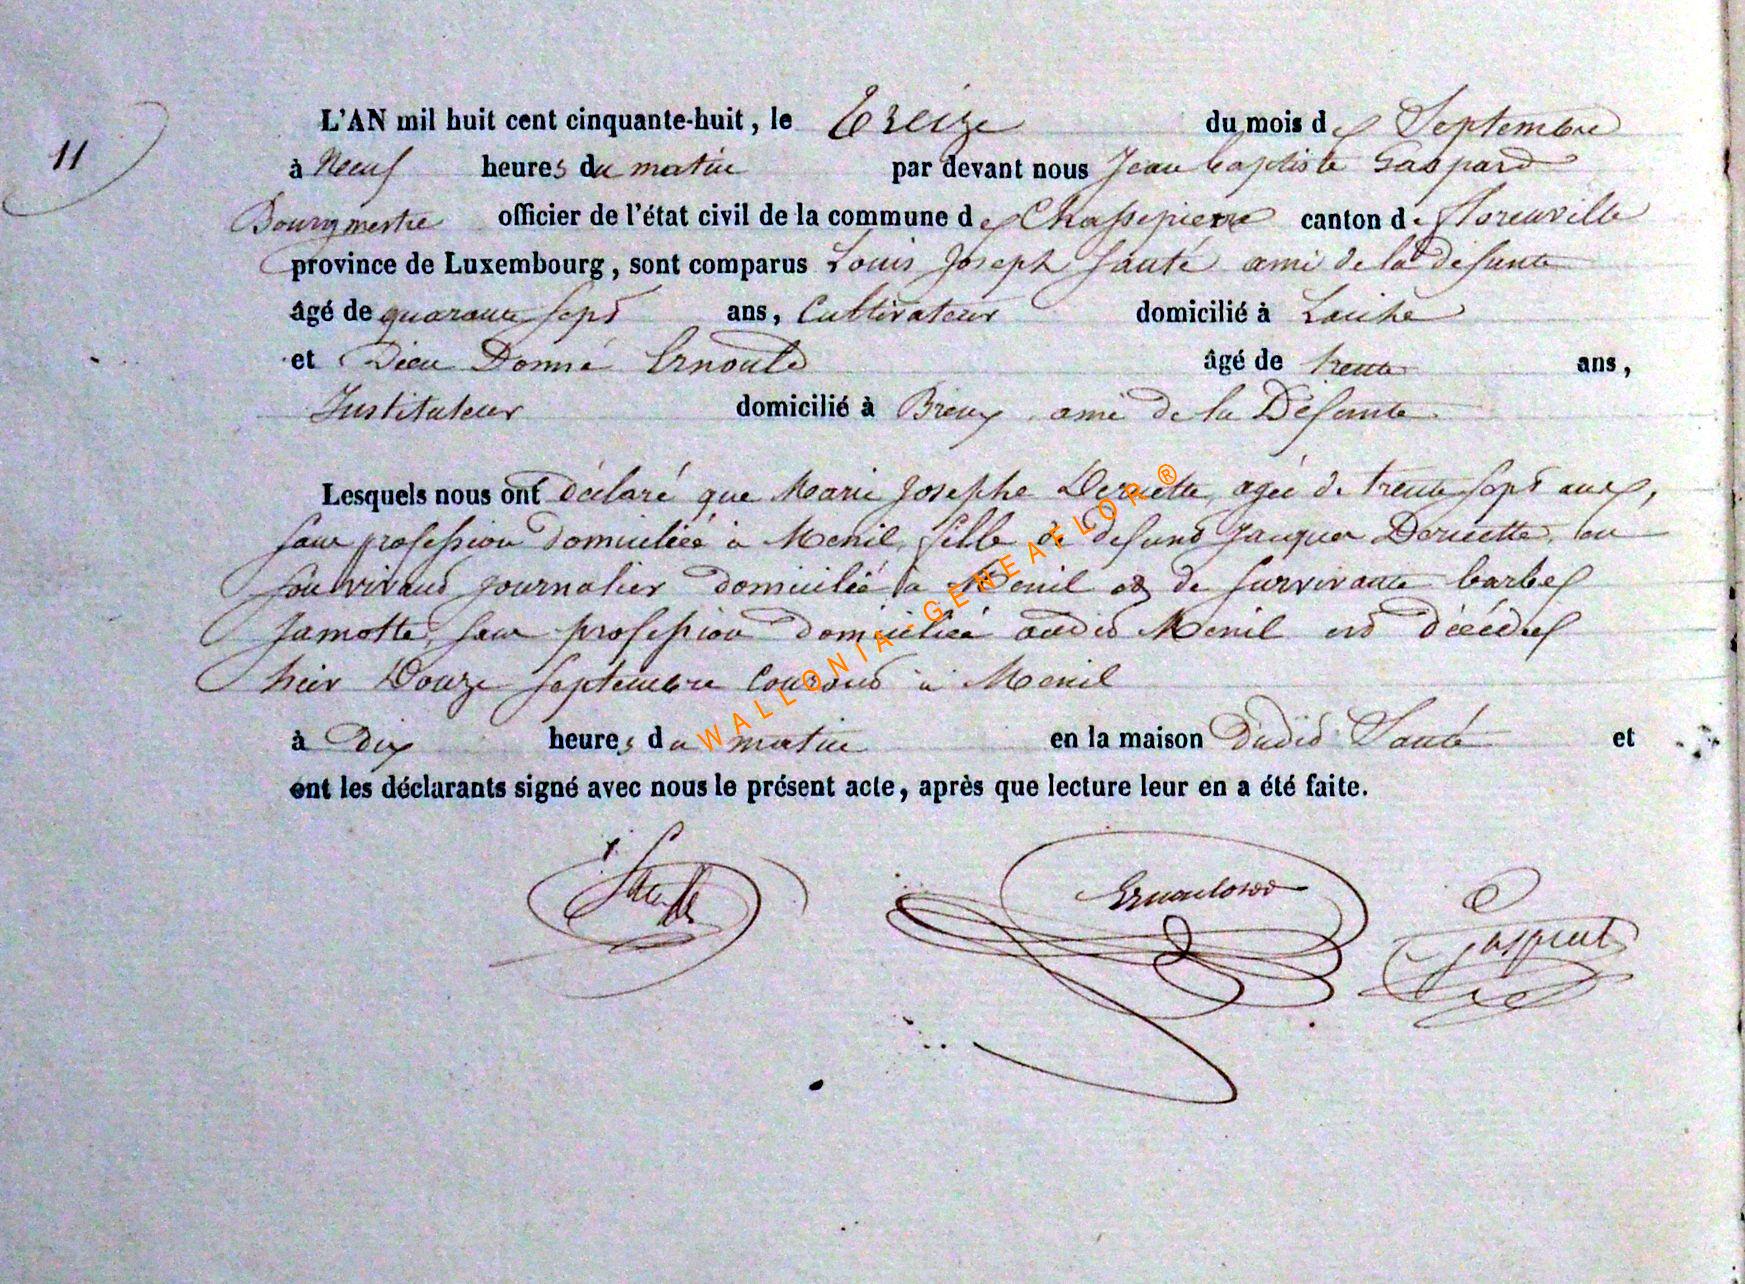 11
L'AN mil huit cent cinquante-huit, le Treize du mois de Septembre
à Neuf heures du matin par devant nous Jean baptiste Gaspard
Bourgmestre officier de l'état civil de la commune de Chassepierre canton de florenville
province de Luxembourg, sont comparus Louis Joseph Santé ami de la défunte
âgé de quarante sept ans, Cultivateur domicilié à Laiche
et Dieu Donné Ernould âgé de trente ans,
Instituteur domicilié à Breux ami de la Défunte
Lesquels nous ont déclaré que Marie Josephe agée de trente sept ans,
sans profession domiciliée à Menil, fille de defund Jacques en
son vivand journalier domicilié à Menil et de survivante barbe
Jamotte, sans profession domiciliée audit Menil est décédée
hier Douze Septembre Courand à Menil
à Dix heures du matin en la maison Dudid Santé et
ont les déclarants signé avec nous le présent acte, après que lecture leur en a été faite.
WALLONIA-GENEAFLOR®
Gaspard